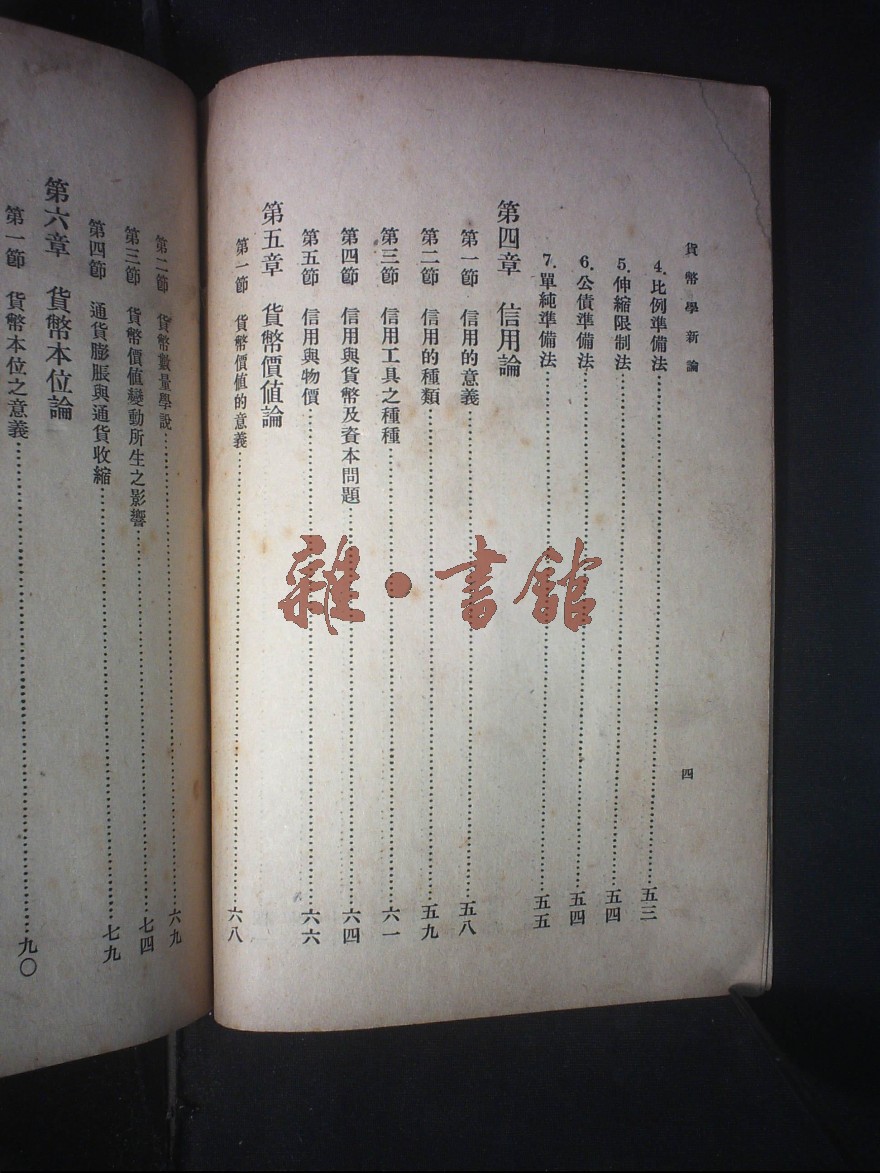 貨幣學新論
四
4.比例準備法……五三
5.伸縮限制法……五四
6.公債準備法……五四
7.單純準備法……五五
第四章 信用論
第一節 信用的意義……五八
第二節 信用的種類……五九
第三節 信用工具之種種……六一
第四節 信用與貨幣及資本問題……六四
第五節 信用與物價……六六
第五章 貨幣價值論
第一節 貨幣價值的意義……六八
第二節 貨幣數量學說……六九
第三節 貨幣價值變動所生之影響……七四
第四節 通貨膨脹與通貨收縮……七九
第六章 貨幣本位論
第一節 貨幣本位之意義……九〇
雜·書館